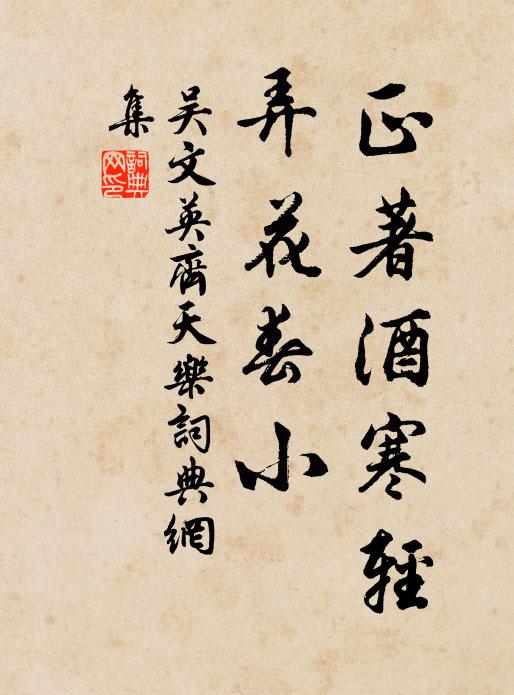 正著酒寒輕
弄花春小
吳文英齊天樂詞典網
集
詞典網印